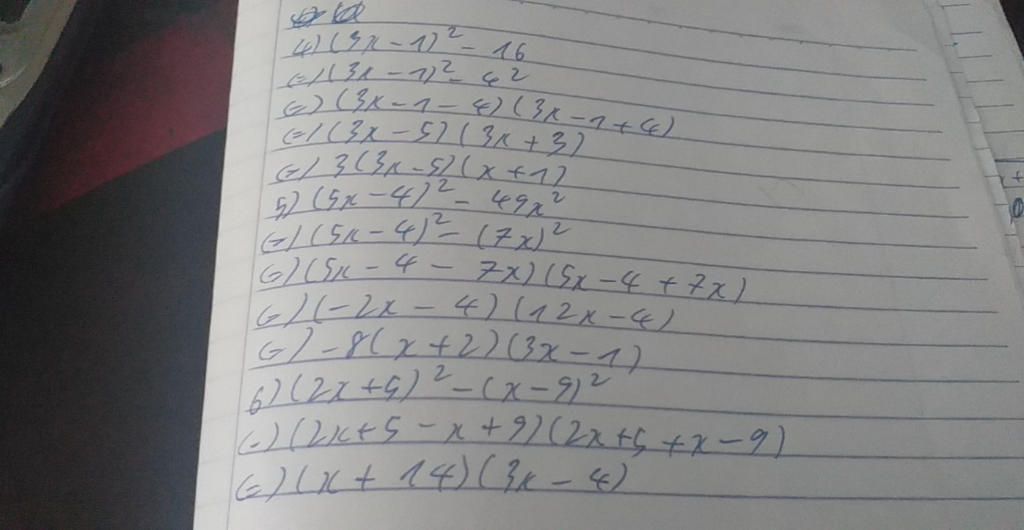 4) (3x - 1)² - 16
(=) (3x - 1)² - 4²
(=) (3x - 1 - 4) (3x - 1 + 4)
(=) (3x - 5) (3x + 3)
(=) 3(3x - 5) (x + 1)
5) (5x - 4)² - 49x²
(=) (5x - 4)² - (7x)²
(=) (5x - 4 - 7x) (5x - 4 + 7x)
(=) (-2x - 4) (12x - 4)
(=) -8(x + 2) (3x - 1)
6) (2x + 5)² - (x - 9)²
(=) (2x + 5 - x + 9) (2x + 5 + x - 9)
(=) (x + 14) (3x - 4)